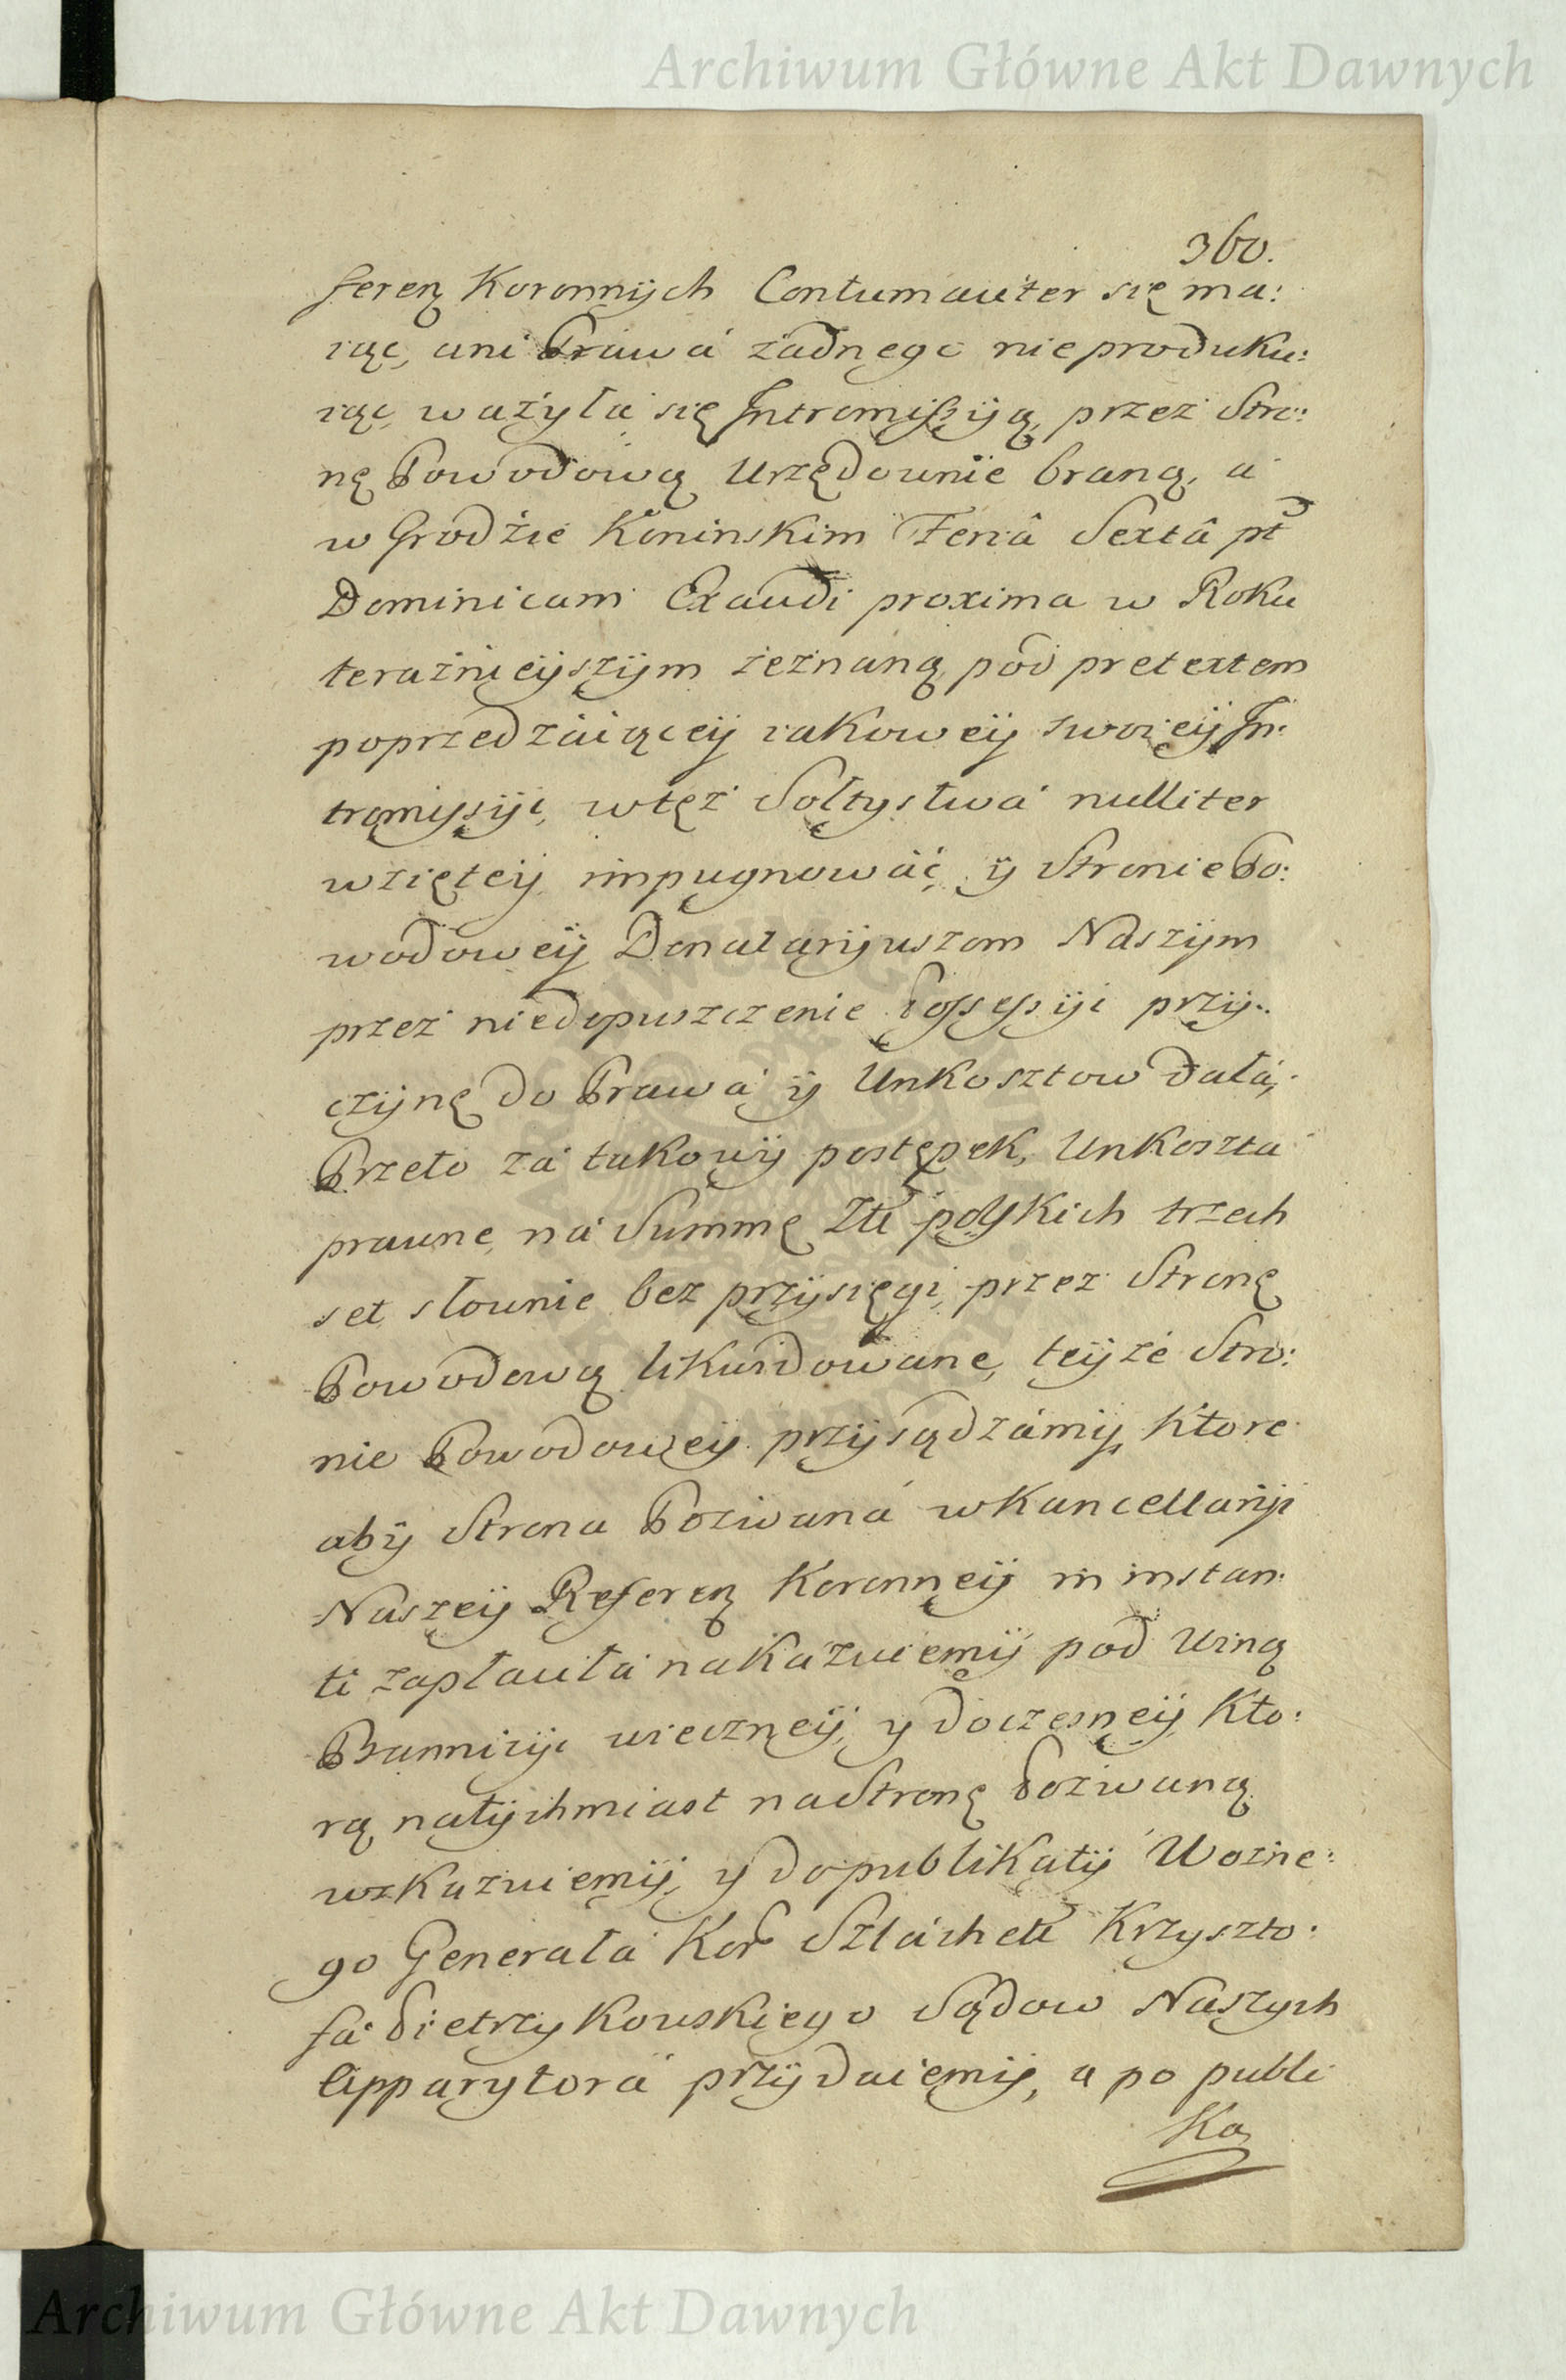 Archiwum Główne Akt Dawnych
360.
feren Koronnÿch Contumaciter się ma:
iąc, ani Prawá żadnego nie produku:
iąc, ważyła się Intromissÿą, przez Stro:
nę Powodową Urzędownie braną, a
w Grodzie Koninskim Feriâ Sextâ pt
Dominicam Exaudi proxima w Roku
teraźnieÿszÿm zeznaną, pod pretextem
poprzedzáiąceÿ iakoweÿ swoieÿ In:
tromissÿi, wteż Sołtystwá nulliter
wzięteÿ, impugnowáć, ÿ Stronie Po:
wodoweÿ Donatarÿuszom Naszÿm
przez niedopuszczenie Possessÿi przÿ:
czÿnę do Prawá ÿ Unkosztow dała;
Przeto zá takowÿ postępek, Unkoszta
prawne, ná Summę Złł polskich trzech
set słownie bez przÿsięgi, przez Stronę
Powodową likwidowane, teÿże Stro:
nie Powodoweÿ przÿsądzámÿ, Ktore
abÿ Strona Pozwaná w Kancellarÿi
Naszeÿ Referen Koronneÿ in instan:
ti zapłaciłá nakázuiemÿ pod winą
Bannicÿi wieczneÿ, y doczesneÿ, Kto:
rą natÿchmiast na Stronę Pozwaną
wskazuiemÿ, y do publikatÿ Woźne:
go Generałá Kor Szláchetɫ Krzyszto:
fá Pietrzykowskiego Sądow Naszych
Apparytorá przÿdaiemÿ, a po publi
Ka
Archiwum Główne Akt Dawnych